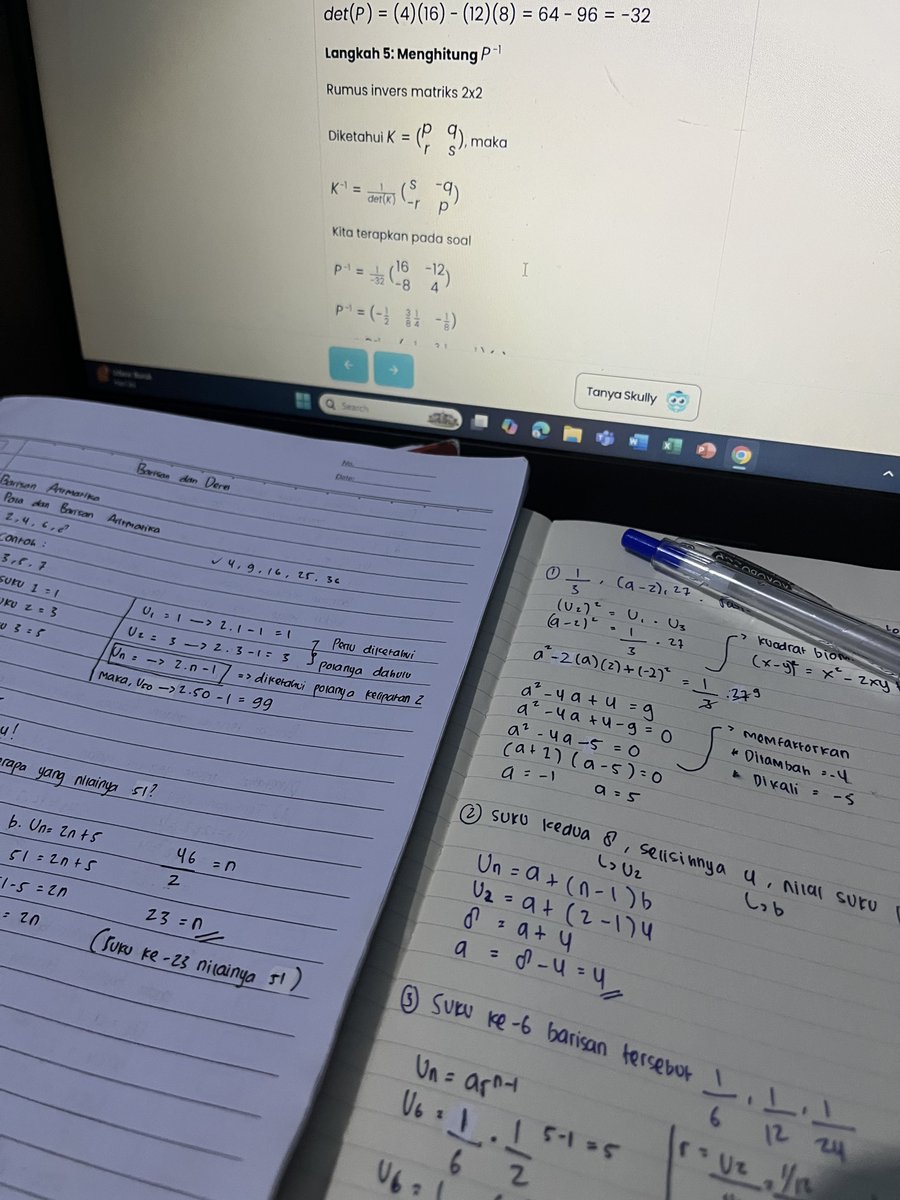 det(P) = (4)(16) - (12)(8) = 64 - 96 = -32
Langkah 5: Menghitung P⁻¹
Rumus invers matriks 2x2
Diketahui K = (p q
r s), maka
K⁻¹ = 1/det(K) (s -q
-r p)
Kita terapkan pada soal
P⁻¹ = 1/-32 (16 -12
-8 4)
P⁻¹ = (-1/2 3/8 1/4 -1/8)
Tanya Skully
Search
No.
Date:
Barisan dan Deret
Barisan Aritmatika
Pola dan Barisan Aritmatika
2, 4, 6, 8
Contoh :
✓ 4, 9, 16, 25, 36
3, 5, 7
suku 1 = 1
suku 2 = 3
suku 3 = 5
U₁ = 1 → 2.1-1 = 1
U₂ = 3 → 2.3-1 = 3
Perlu diketahui
polanya dahulu
Un = → 2.n-1 => diketahui polanya kelipatan 2
Maka, U₅₀ → 2.50 - 1 = 99
yang nilainya 51?
b. Un = 2n+5
51 = 2n+5
51-5 = 2n
= 2n
46/2 = n
23 = n
(suku ke-23 nilainya 51)
① 1/3, (a-2), 27
(U₂)² = U₁ . U₃
(a-2)² = 1/3 . 27
a²-2(a)(2)+(-2)² = 1/3 . 27 9
a²-4a+4 = 9
a²-4a+4-9 = 0
a²-4a-5 = 0
(a+2) (a-5) = 0
a = -1
a = 5
kuadrat
(x-y)² = x² - 2xy
memfaktorkan
* Ditambah = -4
* Dikali = -5
② suku kedua 8, selisihnya 4, nilai suku
↳ U₂
↳ b
Un = a + (n-1) b
U₂ = a + (2-1) 4
8 = a + 4
a = 8 - 4 = 4
③ suku ke-6 barisan tersebut 1/6, 1/12, 1/24
Un = arⁿ⁻¹
U₆ = 1/6 . 1/2 5-1 = 5
r = U₂ = 1/12
U₆ = 1